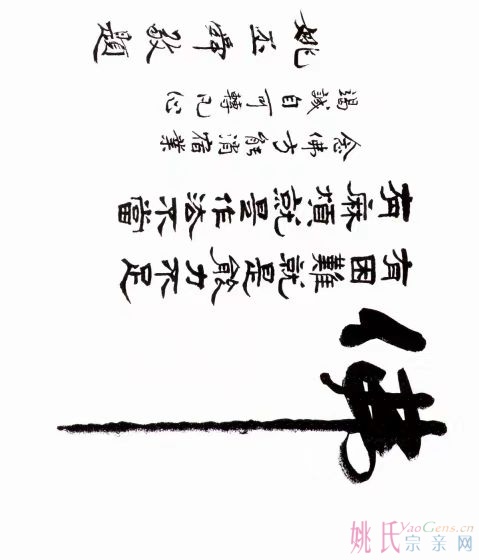 佛
有困難就是能力不足
有麻煩就是作法不當
念佛方能消宿業
竭誠自可轉凡心
姚丕舜敬題
姚氏宗亲网
YaoGens.cn